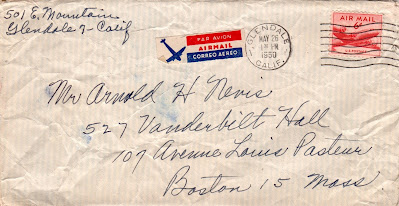 501 E. Mountain
Glendale 7- Calif
PAR AVION
AIRMAIL
CORREO AEREO
GLENDALE
MAY 26
1950
CALIF.
AIR MAIL
6¢
Mr Arnold H Nevis
527 Vanderbilt Hall
107 Avenue Louis Pasteur
Boston 15 Mass